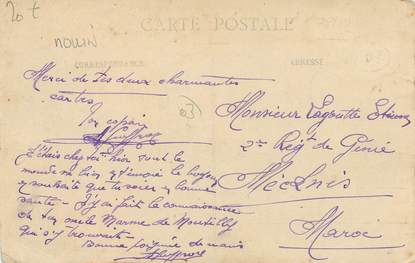 20 t
NOUIN
CARTE POSTALE
CORRESPONDANCE
ADRESSE
Merci de tes deux charmantes
cartes
Ton copain
J'étais chez toi hier tout le
monde va bien
souhaite que tu sois en bonne
santé - J'y ai fait la connaissance
de ton oncle Marme de
qui s'y trouvait -
Bonne poignée de main
63
Monsieur Lagoutte Etienne
2e Régt de Génie
Méknis
Maroc